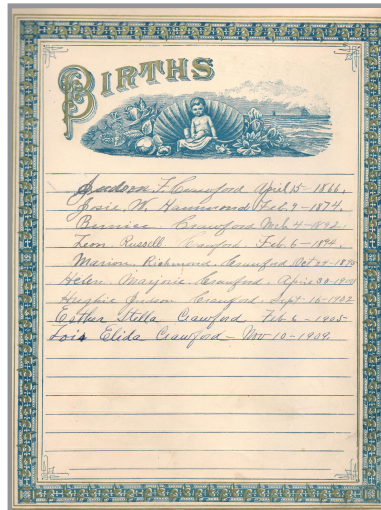 BIRTHS
Judson F. Crawford April 15 - 1866.
Josie. W. Hammond Feb. 9 - 1874.
Bernice Crawford Mch 4 - 1892.
Leon Russell Crawford Feb 6 - 1894.
Marion. Richmond. Crawford Oct 24 - 1895
Helen Marjorie Crawford. April 30
Hughie Judson Crawford. Sept 16 - 1902
Esther Stella Crawford Feb 6 - 1905
Lois Elida Crawford - Nov 10 - 1909.